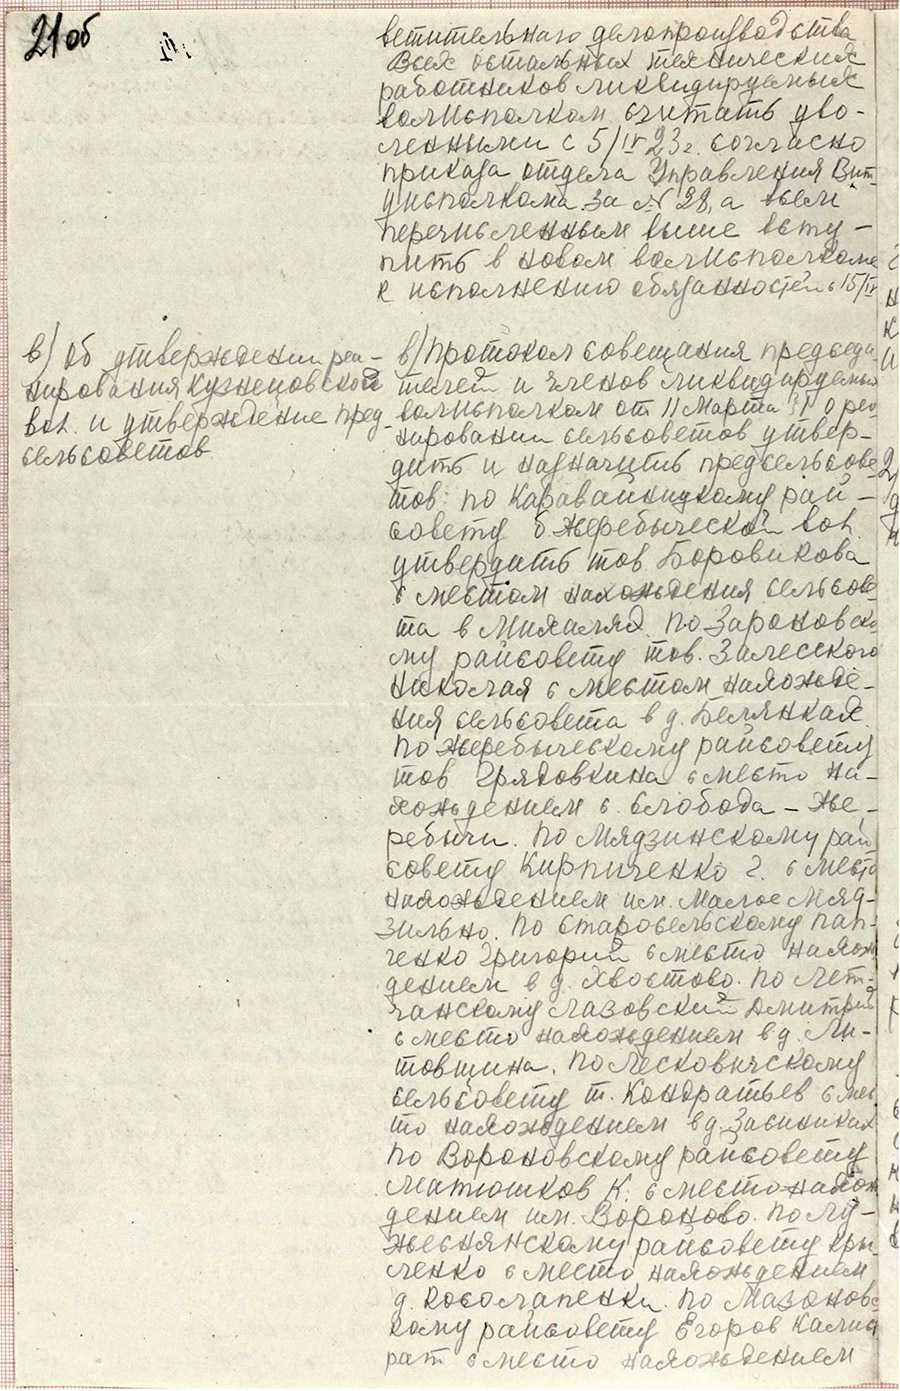 21об
ветительнаго делопроизводства
Всех остальных технических
работников ликвидируемых
волисполком считать уво-
ленными с 5/IV 23г. согласно
приказа отдела Управления Вит-
уисполкома за № 28, а всем
перечисленным выше всту-
пить в новом волисполкоме
к исполнению обязанностей с 15/IV
в) Об утверждении рай-
нирования Кузнецовской
вол. и утверждение пред-
сельсоветов
в) Протокол совещания председа
телей и членов ликвидируемых
волисполком от 11 Марта о рай
нировании сельсоветов утвер-
дить и назначить предсельсове
тов: по Караваинцкому рай-
совету б. Жеребыческой вол.
утвердить тов Боровикова
с местом нахождения сельсове-
та в Михаляд по Зароновско
му райсовету тов. Залесского
Николая с местом нахожде-
ния сельсовета в д. Белянках
по Жеребыческому райсовету
тов Грядовкина с место на-
хождением с. Слобода - Же-
ребычи. по Мядзинскому рай
совету Кирпиченко Г. с место
нахождением им. Малое Мяд-
зильно. по Старосельскому Пап-
ченко Григорий с место нахож
дением в д. Хвостово. по Лет-
чанскому Лазовский Дмитрий
с место нахождением в д. Ли-
товщина. по Лесковичскому
сельсовету т. Кондратьев с мес
то нахождением в д. Засинках
по Вороновскому райсовету
Матюшков К. с место нахож
дением им. Вороново. по Лу-
жеснянскому райсовету Кри-
ленко с место нахождением
д. Косолапенки. по Мазонов-
кому райсовету Егоров Калист
рат с место нахождением